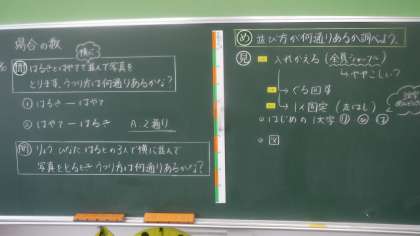 場合の数
問 はるきとはやてで並んで写真を
横に
とります。うつり方は何通りあるかな?
① はるき ― はやて
② はやて ― はるき A.2通り
問 りょう、ひなた、はるとの3人で横に並んで
写真をとるとき、うつり方は何通りあるかな?
め 並び方が何通りあるか調べよう。
見 入れかえる(全員シャッフル)
→ややこしい?
→ぐる回す
→1人固定(左はし)
はじめの1文字